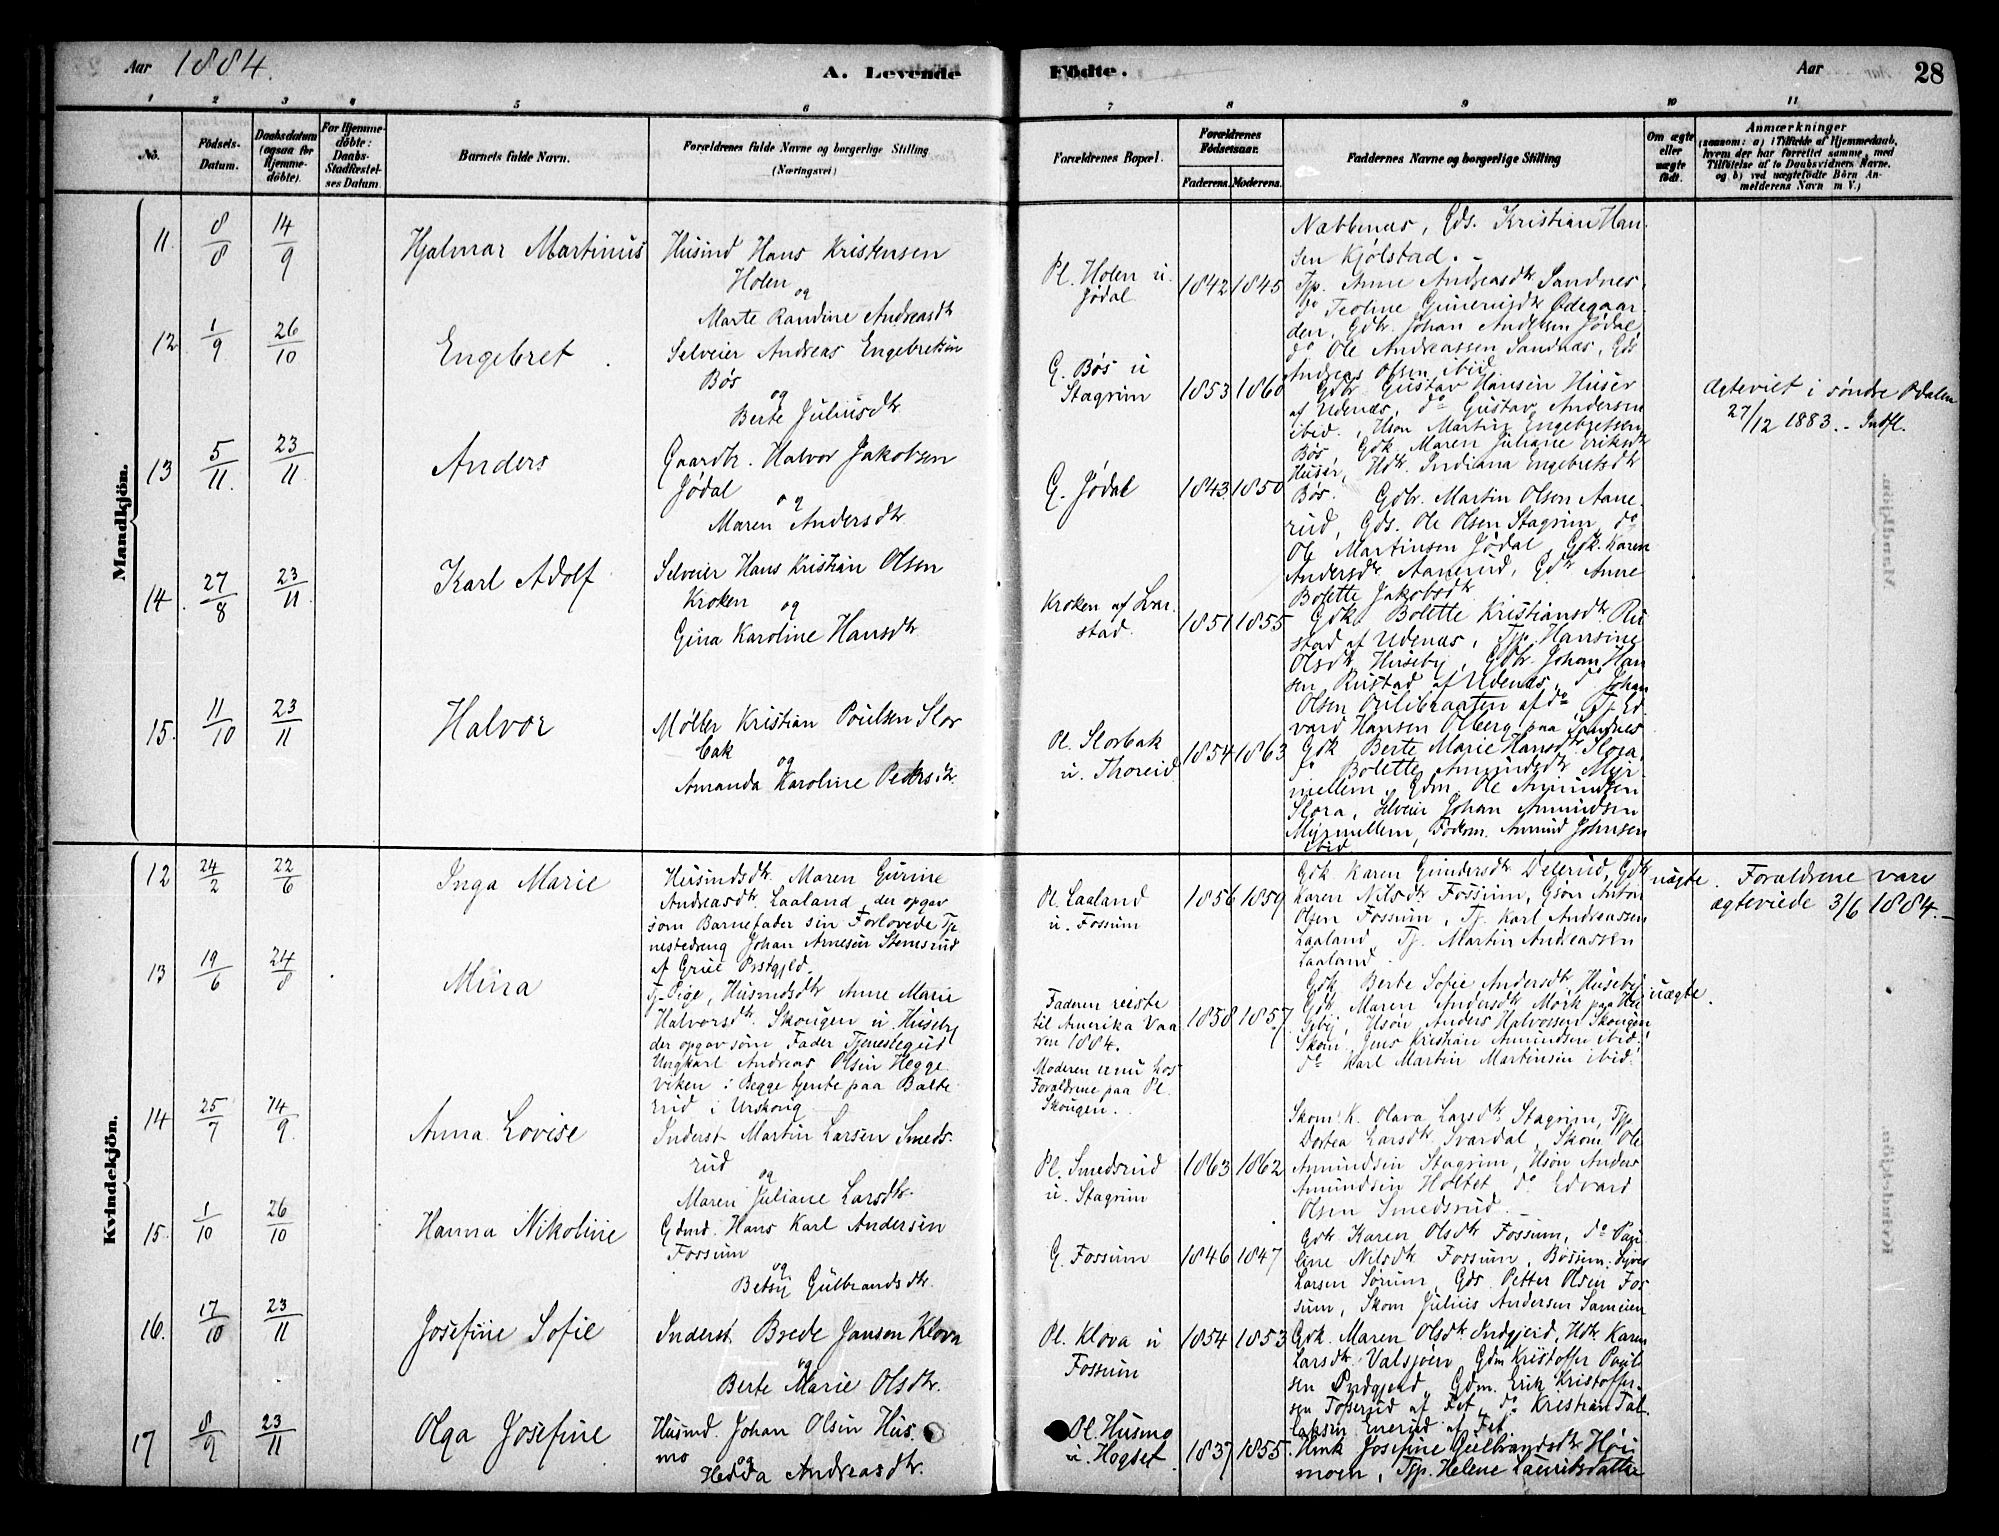 Aar 1884.
A. Levende Födte.
Aar
28
1 2 3 4 5 6 7 8 9 10 11
No.
Födsels-Datum.
Daabsdatum (ogsaa for Hjemmedöbte).
For Hjemmedöbte: Daabs-Stadfæstelses Datum
Barnets fulde Navn.
Forældrenes fulde Navne og borgerlige Stilling (Næringsvei)
Forældrenes Bopæl.
Forældrenes Födselsaar.
Faderens. Moderens.
Faddernes Navne og borgerlige Stilling
Om ægte eller uægte födt.
Anmærkninger
(saasom: a) i Tilfælde af Hjemmedaab, hvem der har forrettet samme, med Tilföielse af to Daabsvidners Navne. og b) ved uægtefödte Börn Anmelderens Navn m V.)
Mandkjön.
11. 8/8 14/9 Hjalmar Martinus
Husmd Hans Kristensen
Holen
og
Marte Randine Andreasdtr
Pl. Holen u.
Jødal
1842 1845
Næbbenæs, Gds. Kristian Han-
sen Kjølstad. -
Tjp. Anne Andreasdtr Sandnes
do Teoline Gunerusdtr Ødegaar-
den, Gdbr. Johan Andersen Jødal,
do Ole Andreassen Sandnæs, Gds
Andreas Olsen ibid.
12 1/9 26/10 Engebret
Selveier Andreas Engebretsen
Bøs
og
Berte Juliusdtr
G. Bøs u
Stagrim
1853 1860
Gdbr. Gustav Hansen Huser
af Udenæs, do Gustav Andersen
ibid., Hsøn Martin Engebretsen
Bøs, Gdk Maren Juliane Eriksdtr
Huser, Hdtr. Indiana Engebretsdtr
Bøs.
Ægteviet i søndre Odalen
27/12 1883. - Indfl.
13 5/11. 23/11. Anders
Gaardbr. Halvor Jakobsen
Jødal
og
Maren Andersdtr.
G. Jødal
1843 1850
Gdbr. Martin Olsen Aane-
rud, Gds. Ole Olsen Stagrim, do
Ole Martinsen Jødal, Gdk. Karen
Andersdtr Aanerud, Gdtr Anne
Bolette Jakobsdtr.
14. 27/8 23/11. Karl Adolf
Selveier Hans Kristian Olsen
Kroken
og
Gina Karoline Hansdtr
Kroken af Svar-
stad.
1851 1855
Gdk Bolette Kristiansdtr Ru-
stad af Udenæs, Tjp. Hansine
Olsdtr Huseby, Gdbr. Johan Han-
sen Rustad af Udenæs, do Johan
Olsen Oulibraaten af do Tj. Ed-
vard Hansen Olberg paa Sandnes
15. 11/10 23/11 Halvor
Møller Kristian Poulsen Slor
bak
og
Amanda Karoline Pedersdtr.
Pl. Slorbak
u. Thoreid
1854 1863
Gdk Berte Marie Hansdtr Slora,
do Bolette Amundsdtr Myr-
mellem, Gdm. Ole Amundsen
Slora, Selveier Johan Amundsen
Myrmellem, Foderm. Amund Johnsen
ibid.
Kvindekjön.
12 24/2 22/6 Inga Marie
Husmdsdtr. Maren Gurine
Andreasdtr. Laaland, der opgav
som Barnefader sin Forlovede Tje
nestedreng Johan Arnesen Stenesrud
af Grue Præstgjeld.
Pl. Laaland
u. Fossum
1856 1859
Gdk Karen Gundersdtr Delerud, Gdk
Karen Nilsdtr Fossum, Gsøn Anton
Olsen Fossum, Tj. Karl Andreassen
Laaland, Tj. Martin Andreassen
Laaland.
uægte.
Forældrene vare
ægteviede 3/6 1884. -
13 19/6 24/8 Mina
Tj-Pige, Husmdsdtr Anne Marie
Halvorsdtr. Skougen u. Huseby
der opgav som Fader Tjenestegut
Ungkarl Andreas Olsen Hegge
viken : Begge tjente paa Balte
rud i Urskoug
Faderen reiste
til Amerika Vaa
ren 1884.
Moderen er nu hos
Forældrene paa Pl.
Skougen.
1858 1857
Gdk Berte Sofie Andersdtr, Huseby
Gdk Maren Andersdtr Mork paa Hu-
seby, Hsøn Anders Halvorsen Skougen
Skom. Jens Kristian Amundsen ibid.
do Karl Martin Martinsen ibid.
uægte.
14 25/7 14/9. Anna Lovise
Inderst Martin Larsen Smeds-
rud
og
Maren Juliane Larsdtr.
Pl. Smedsrud
u. Stagrim
1863 1862
Skom. K. Olava Larsdtr. Stagrim, Tjp.
Dortea Larsdtr Svardal, Skom. Ole
Amundsen Stagrim, Hsøn Anders
Amundsen Holtet, do. Edvard
Olsen Smedsrud. -
15. 1/10 26/10 Hanna Nikoline
Gdmd. Hans Karl Andersen
Fossum
og
Betsy Gulbrandsdtr.
G. Fossum
1846 1847
Gdk Karen Olsdtr Fossum, do Pau-
line Nilsdtr Fossum,
Larsen Sørum, Gds. Petter Olsen Fos-
sum, Skom Julius Andersen
16. 17/10 23/11 Josefine Sofie
Inderst Brede Jansen Klova
og
Berte Marie Olsdtr.
Pl. Klova u
Fossum
1854 1853
Gdk. Maren Olsdtr Indgjerd, Hdtr Karen
Larsdtr Valsjøen Gdm Kristoffer Poul-
sen Indgjerd, Gdm. Erik Kristoffer-
sen Tosserud af Fet, do Kristian Tol-
lefsen Enerud af Fet
17 8/9 23/11 Olga Josefine
Husmd. Johan Olsen Hus-
mo
og
Hedda Andreasdtr.
Pl. Husmo
u. Hogset.
1837 1855.
Umk Josefine Gulbrandsdtr Høi
moen, Tjp. Helene Lauritsdatter